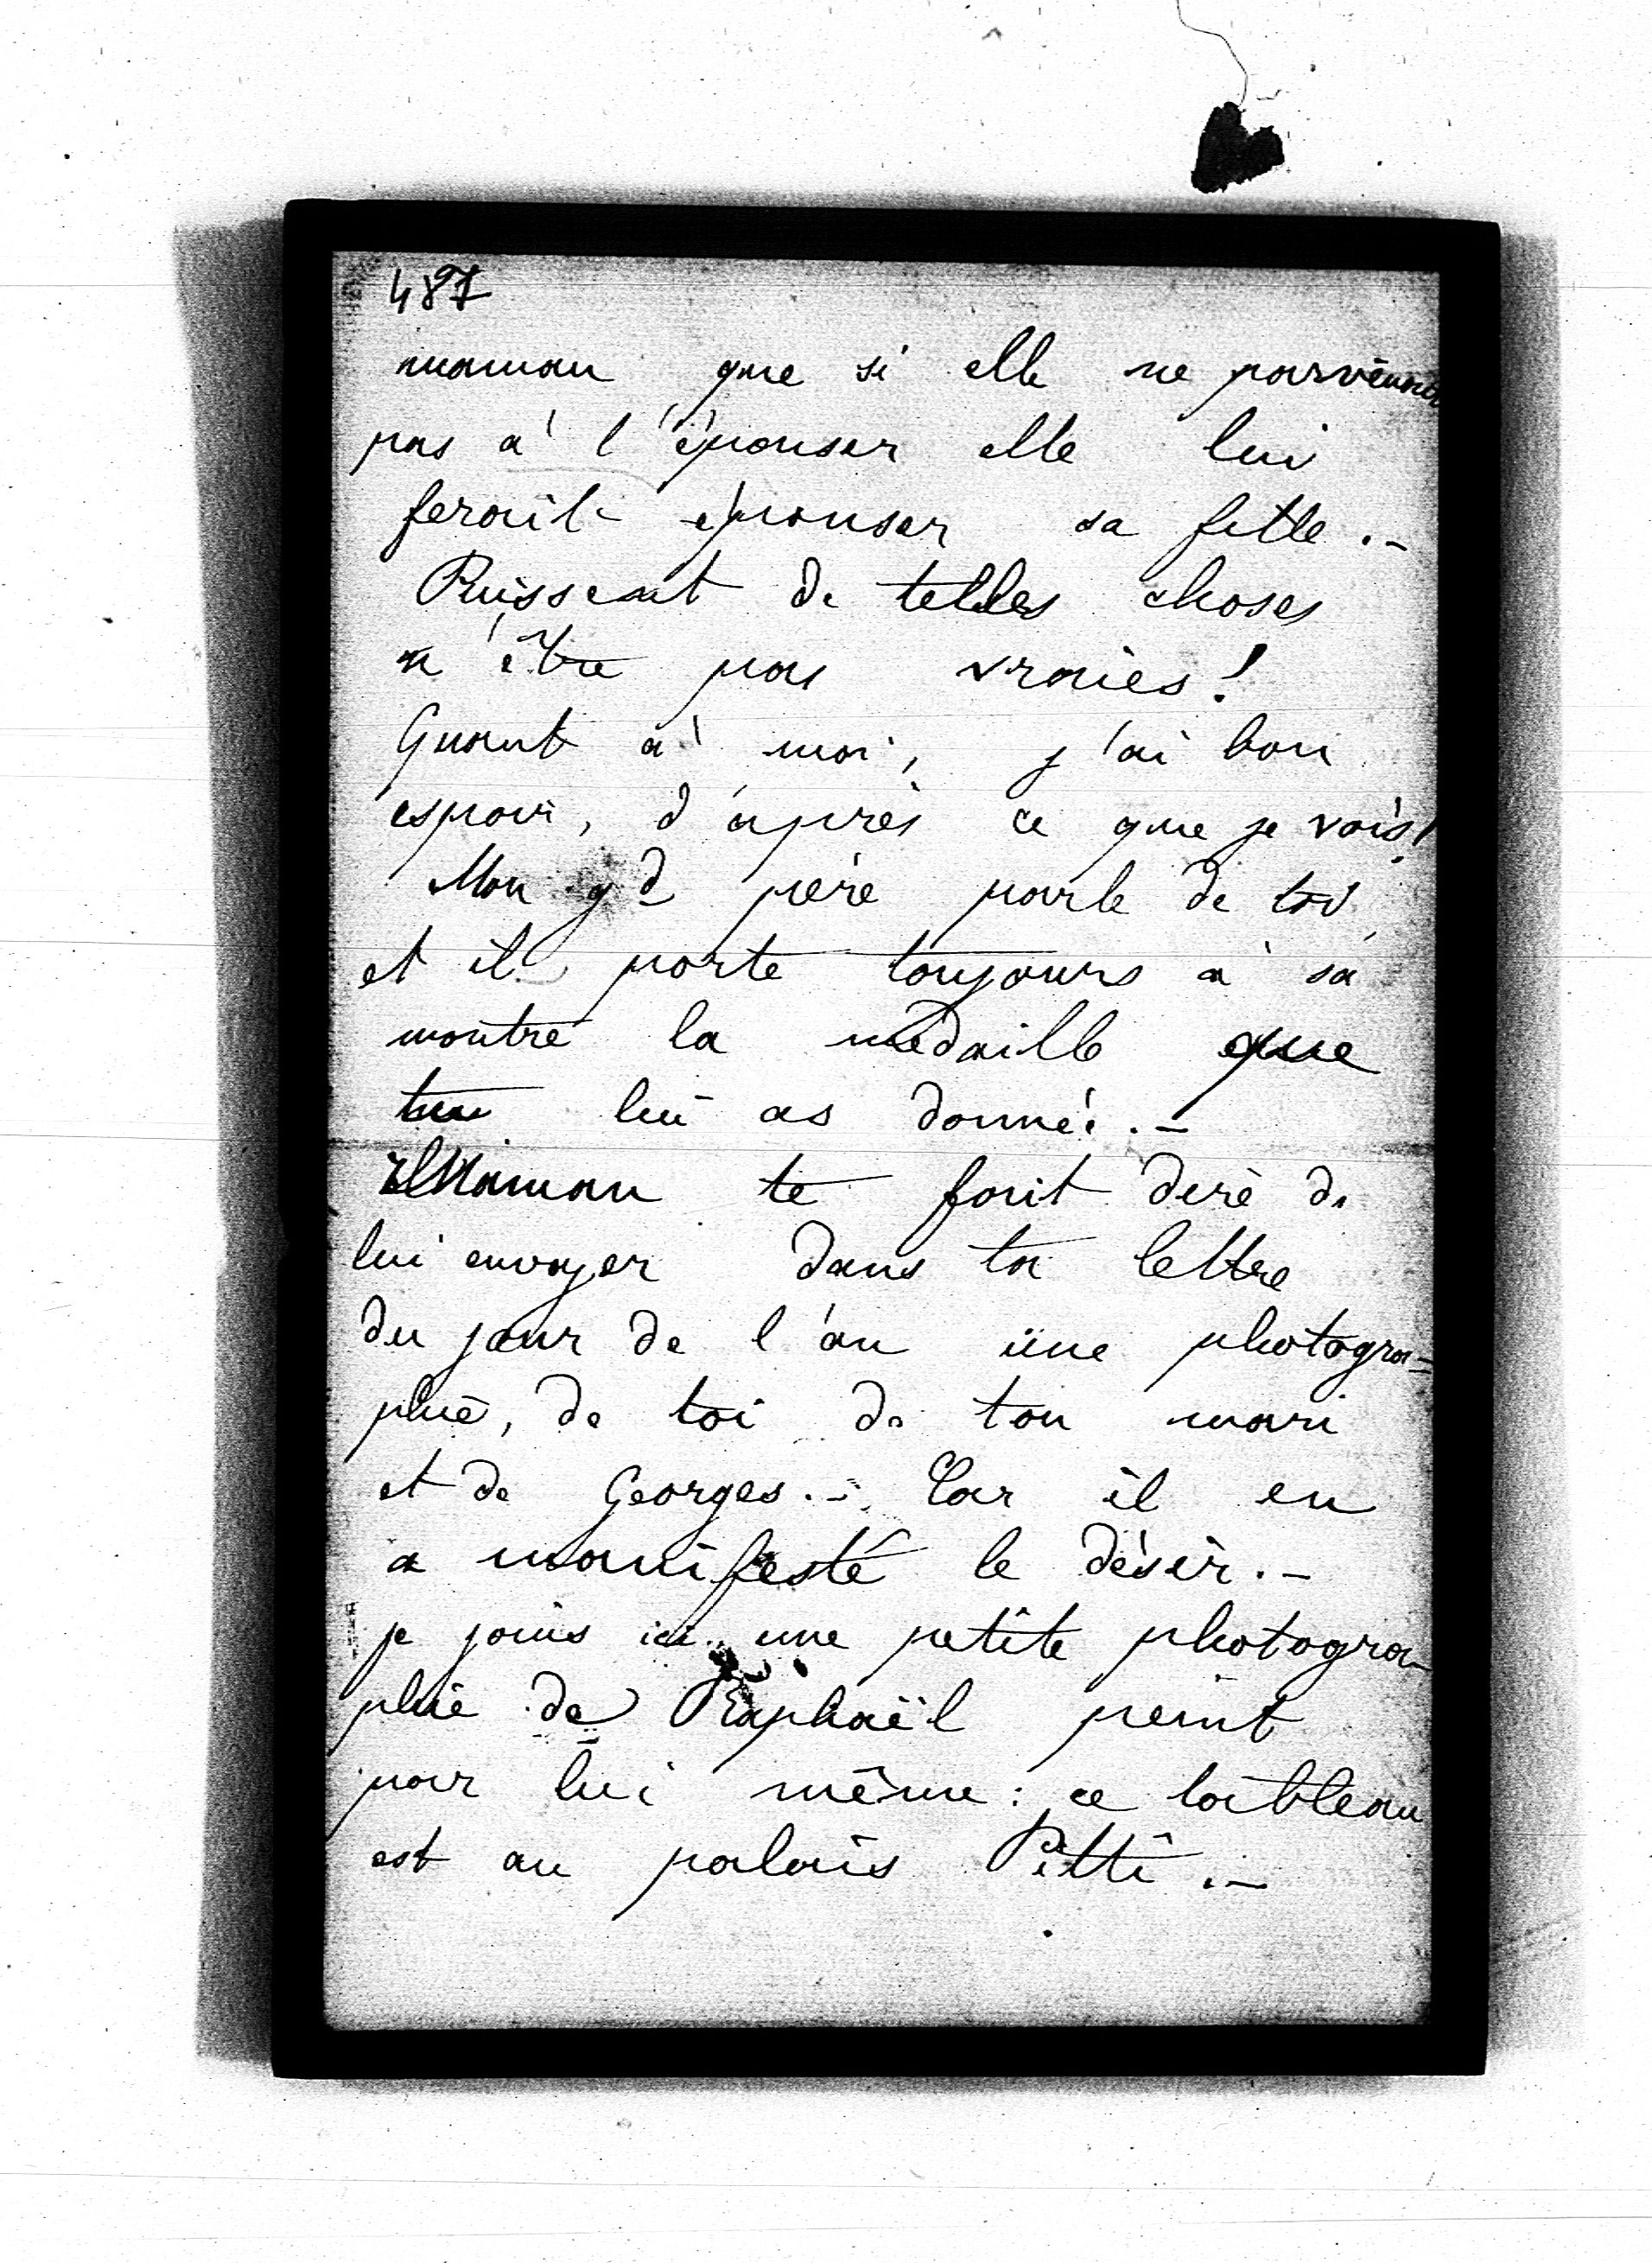 487
maman que si elle ne parvenait
pas à l'épouser elle lui
ferait épouser sa fille.-
Puissent de telles choses
n'être pas vraies!
Quant à moi, j'ai bon
espoir, d'après ce que je vois!
Mon gd père parle de toi
et il porte toujours à sa
montre la médaille que
tu lui as donnée.-
Maman te fait dire de
lui envoyer dans ta lettre
du jour de l'an une photogra=
phie, de toi de ton mari
et de Georges.- Car il en
a manifesté le désir.-
je joins ici une petite photogra-
phie de Raphaël peint
par lui même: ce tableau
est au palais Pitti.-